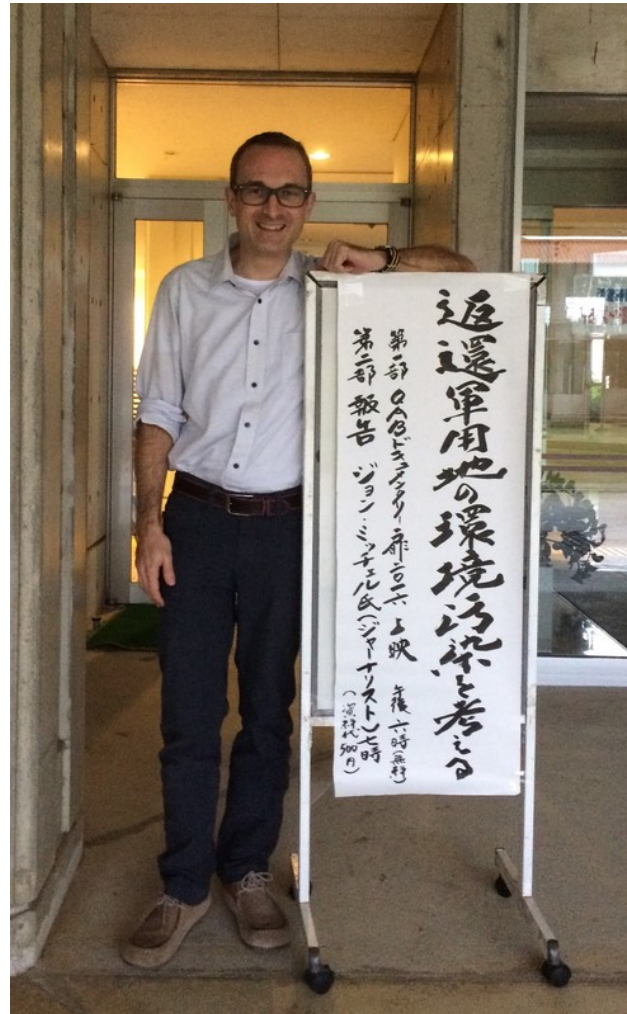 返還軍用地の環境汚染を考える
第一部 QABドキュメンタリー 扉二〇一六 上映 午後六時(無料)
第二部 報告 ジョン・ミッチェル氏(ジャーナリスト)七時
(資料代500円)